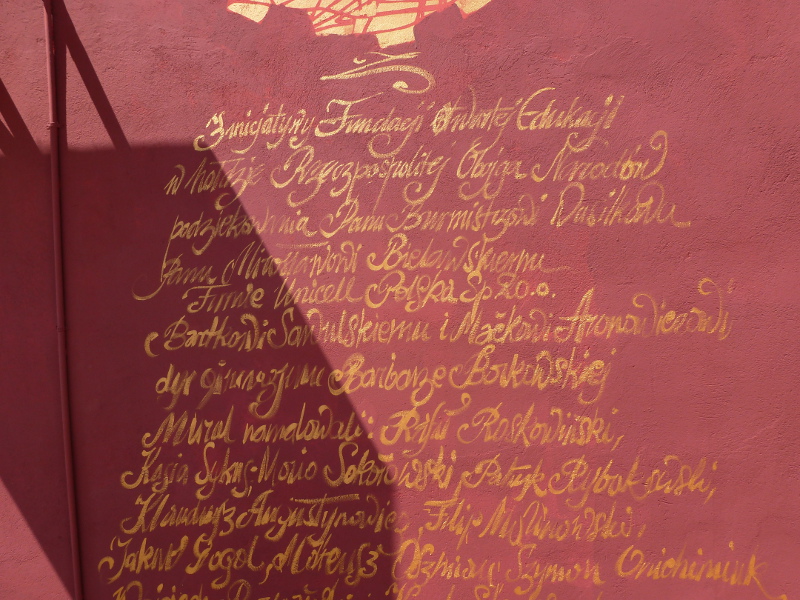 Z inicjatywy Fundacji Otwartej Edukacji
w hołdzie Rzeczpospolitej Obojga Narodów
podziękowania Panu Burmistrzowi Wasilkowa
Panu Mirosławowi Bielawskiemu
Firmie Unicell Polska Sp. z o.o.
Bartkowi Sawulskiemu i Maćkowi Aronowiczowi
dyr gimnazjum Barbarze Borkowskiej
Mural namalowali: Rafał Roskowiński,
Kasia Maria Sokołowski, Patryk Rybałtowski,
Augustynowicz, Filip
Jakub Gogol, Mateusz Szymon Onichimiuk